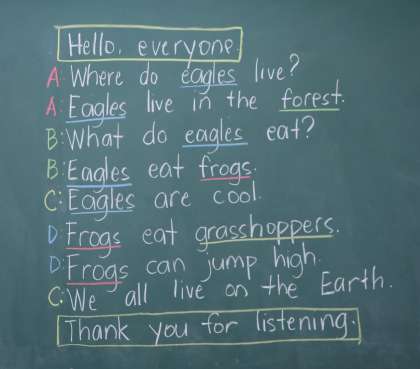 Hello, everyone.
A: Where do eagles live?
A: Eagles live in the forest.
B: What do eagles eat?
B: Eagles eat frogs.
C: Eagles are cool.
D: Frogs eat grasshoppers.
D: Frogs can jump high.
C: We all live on the Earth.
Thank you for listening.